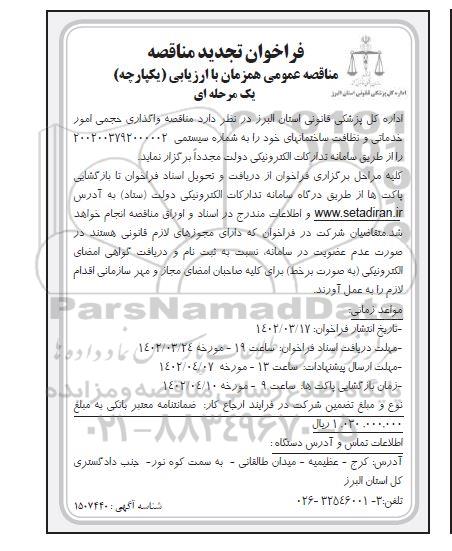 فراخوان تجدید مناقصه
مناقصه عمومی همزمان با ارزیابی (یکپارچه)
یک مرحله ای
اداره کل پزشکی قانونی استان البرز
اداره کل پزشکی قانونی استان البرز در نظر دارد مناقصه واگذاری حجمی امور
خدماتی و نظافت ساختمانهای خود را به شماره سیستمی ۲۰۰۲۰۰۳۷۹۲۰۰۰۰۰۲
را از طریق سامانه تدارکات الکترونیکی دولت مجدداً برگزار نماید.
کلیه مراحل برگزاری فراخوان از دریافت و تحویل اسناد فراخوان تا بازگشایی
پاکت ها از طریق درگاه سامانه تدارکات الکترونیکی دولت (ستاد) به آدرس
www.setadiran.ir و اطلاعات مندرج در اسناد و اوراق مناقصه انجام خواهد
شد.متقاضیان شرکت در فراخوان که دارای مجوزهای لازم قانونی هستند در
صورت عدم عضویت در سامانه، نسبت به ثبت نام و دریافت گواهی امضای
الکترونیکی (به صورت برخط) برای کلیه صاحبان امضای مجاز و مهر سازمانی اقدام
لازم را به عمل آورند.
مواعد زمانی:
-تاریخ انتشار فراخوان: ۱۴۰۲/۰۳/۱۷
-مهلت دریافت اسناد فراخوان: ساعت ۱۹ - مورخه ۱۴۰۲/۰۳/۲۴
-مهلت ارسال پیشنهادات: ساعت ۱۳ - مورخه ۱۴۰۲/۰۴/۰۷
-زمان بازگشایی پاکت ها: ساعت ۹ - مورخه ۱۴۰۲/۰۴/۱۰
نوع و مبلغ تضمین شرکت در فرایند ارجاع کار: ضمانتنامه معتبر بانکی به مبلغ
۱.۰۳۰.۰۰۰.۰۰۰ ریال
اطلاعات تماس و آدرس دستگاه :
آدرس: کرج - عظیمیه - میدان طالقانی - به سمت کوه نور- جنب دادگستری
کل استان البرز
تلفن:۳- ۳۲۵۴۶۰۰۱-۰۲۶
شناسه آگهی : ۱۵۰۷۴۴۰
ParsNamadData
۰۲۱-۸۸۳۴۹۶۷۰-۵